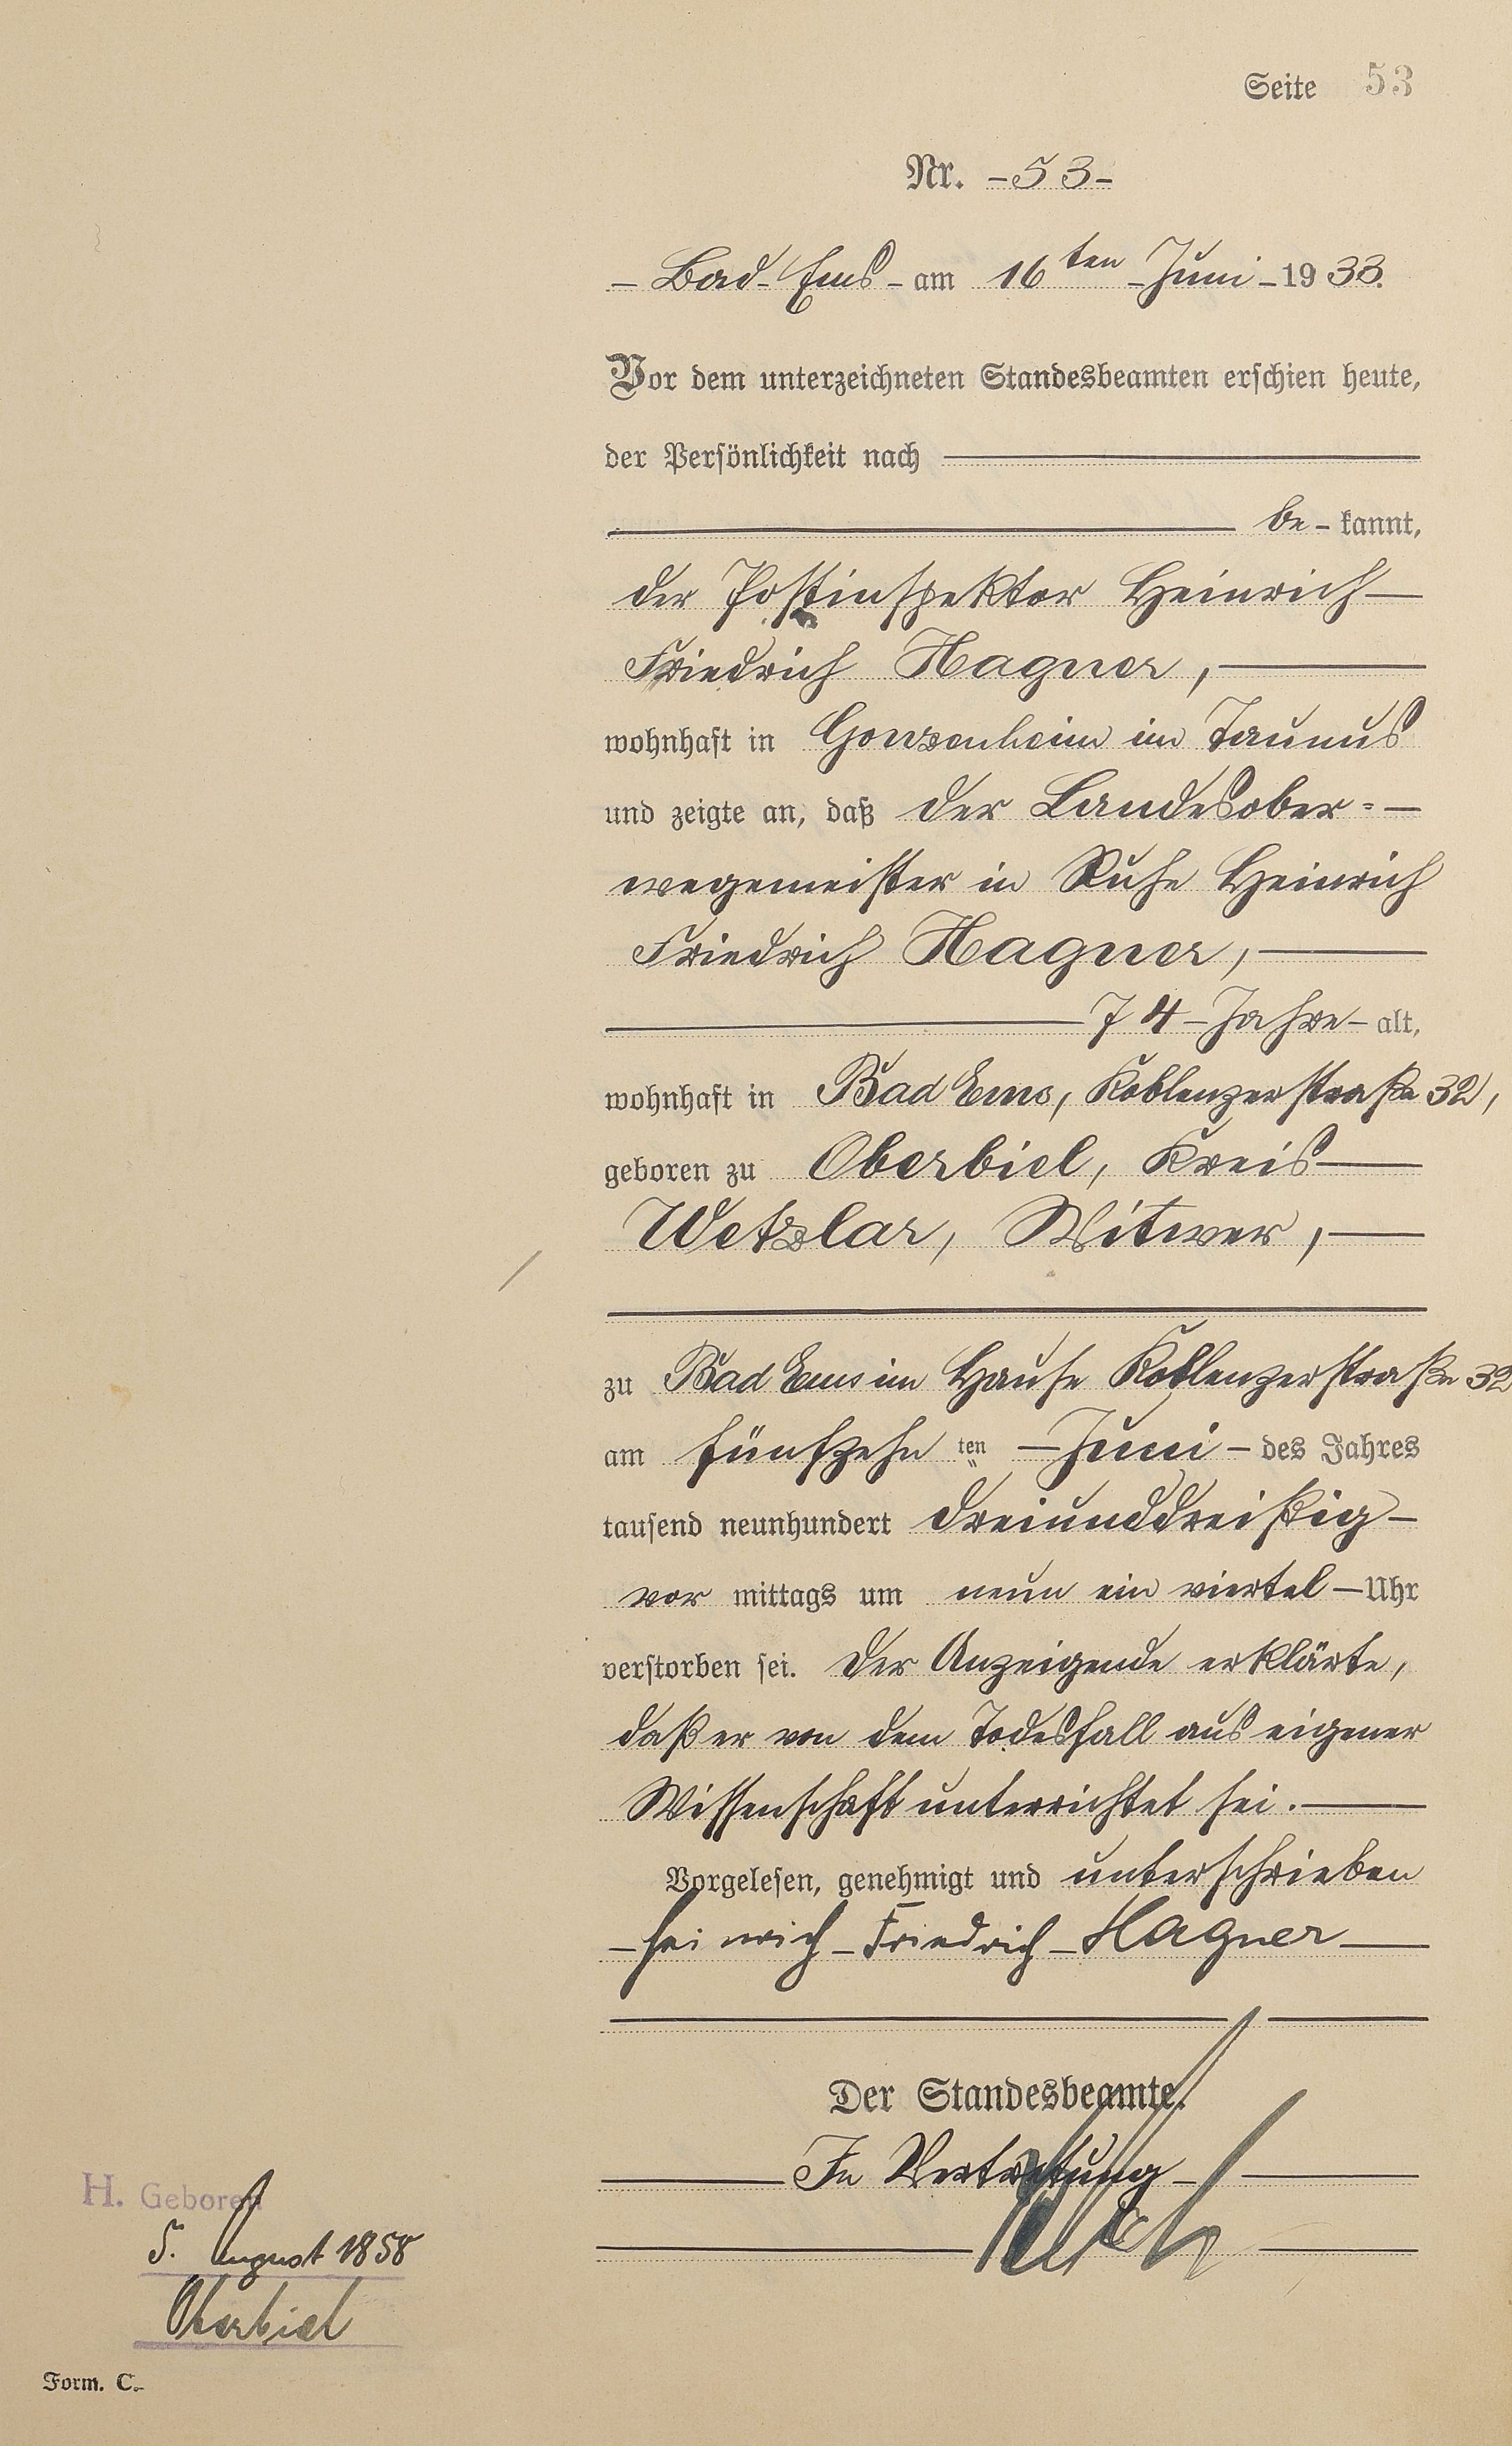 Seite 53
Nr. -53-
- Bad-Ems - am 16ten - Juni - 1933.
Vor dem unterzeichneten Standesbeamten erschien heute,
der Persönlichkeit nach
be- kannt,
der Postinspektor Heinrich
Friedrich Hagner,
wohnhaft in Gonzenheim im Taunus
und zeigte an, daß der Landesober-
wegemeister in Ruhe Heinrich
Friedrich Hagner,
74 - Jahre - alt,
wohnhaft in Bad Ems, Koblenzerstraße 32,
geboren zu Oberbiel, Kreis
Wetzlar, Witwer,
zu Bad Ems im Hause Koblenzerstraße 32
am fünfzehn ten - Juni - des Jahres
tausend neunhundert dreiunddreißig -
vor mittags um neun ein viertel - Uhr
verstorben sei. Der Anzeigende erklärte,
daß er von dem Todesfall aus eigener
Wissenschaft unterrichtet sei.
Vorgelesen, genehmigt und unterschrieben
- Heinrich - Friedrich - Hagner
Der Standesbeamte.
In Vertretung
H. Geboren
5. August 1858
Oberbiel
Form. C.